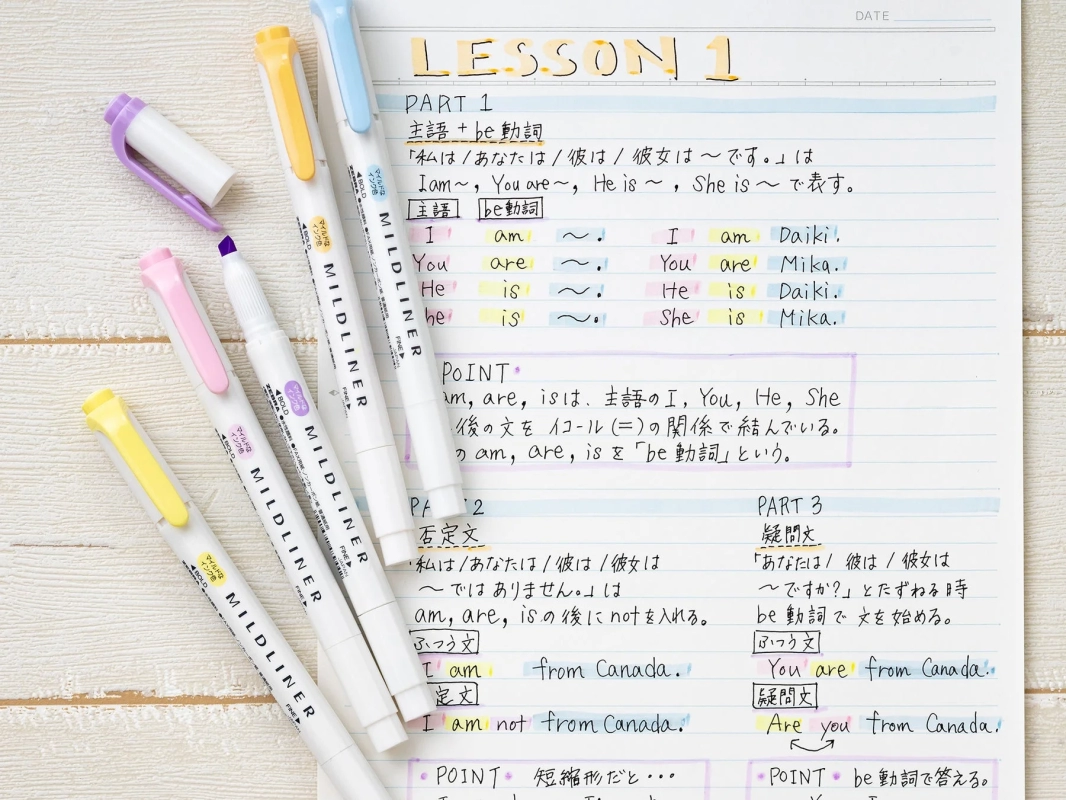 DATE
LESSON 1
PART 1
主語 + be動詞
「私は / あなたは / 彼は / 彼女は 〜です。」は
I am〜, You are〜, He is 〜 , She is 〜 で表す。
主語 be動詞
I am 〜. I am Daiki.
You are 〜. You are Mika.
He is 〜. He is Daiki.
he is 〜. She is Mika.
POINT
am, are, isは、主語の I, You, He, She
後の文を イコール (=) の関係で結んでいる。
の am, are, is を「be動詞」という。
PA 2
否定文
私は / あなたは / 彼は / 彼女は
〜ではありません。」は
am, are, is の後に not を入れる。
ふつう文
I am from Canada.
定文
I am not from Canada.
POINT 短縮形だと・・・
PART 3
疑問文
「あなたは / 彼は / 彼女は
〜ですか?」とたずねる時
be動詞で文を始める。
ふつう文
You are from Canada.
疑問文
Are you from Canada.
POINT be動詞で答える。
マイルドな
インク色
BOLD
MILDLINER
FINE
マイルドな
インク色
BOLD
MILDLINER
FINE
マイルドな
インク色
BOLD
MILDLINER
FINE
マイルドな
インク色
BOLD
MILDLINER
FINE
マイルドな
インク色
BOLD
MILDLINER
FINE